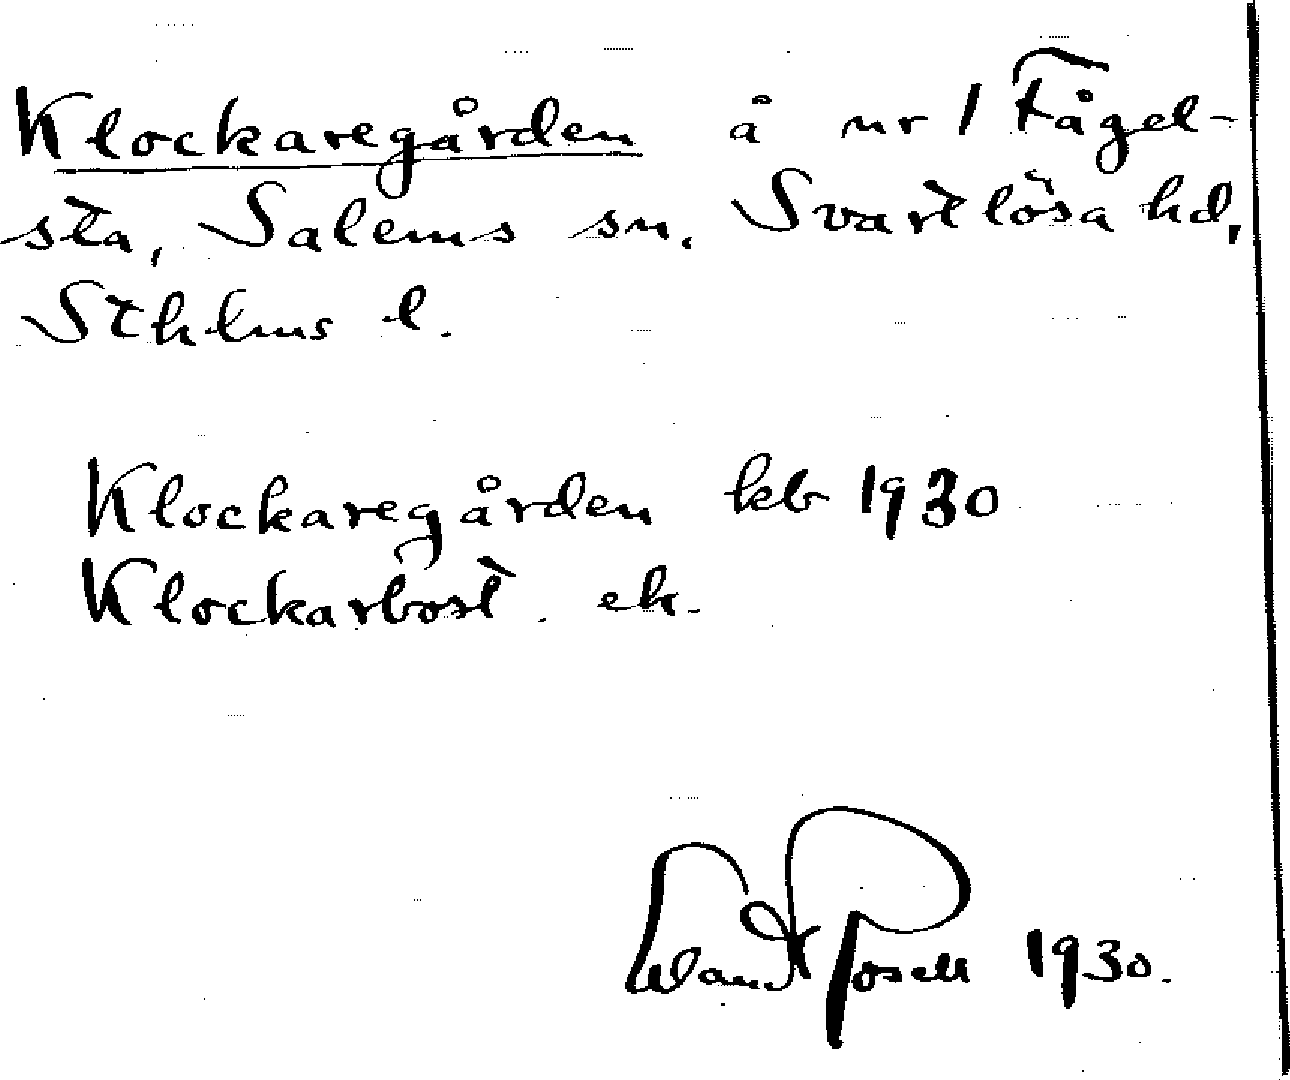 Klockaregården å nr 1 Fågel-
sta, Salems sn. Svartlösa hd,
Sthlms l.
Klockaregården kb 1930
Klockarbost. ek.
Rosell 1930.